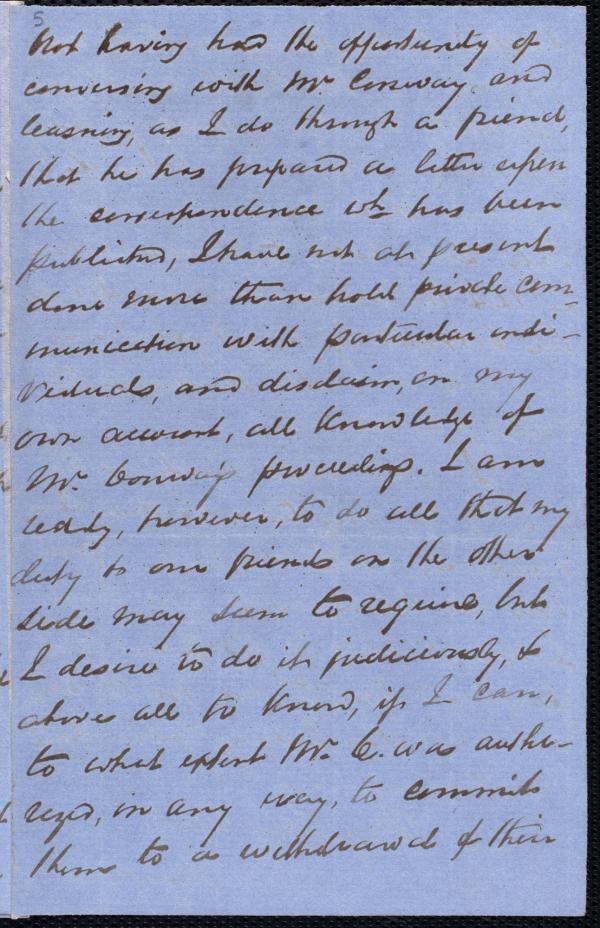 5
Not having had the opportunity of
conversing with Mr Conway, and
learning, as I do through a friend,
that he has prepared a letter upon
the correspondence wh has been
published, I have not at present
done more than hold private com-
munication with particular indi-
viduals, and disclaim, on my
own account, all knowledge of
Mr. Conway's proceedings. I am
ready, however, to do all that my
duty to our friends on the other
side may seem to require, but
I desire to do it judiciously, &
above all to know, if I can,
to what extent Mr. C. was autho-
rized, in any way, to commit
them to a withdrawal of their